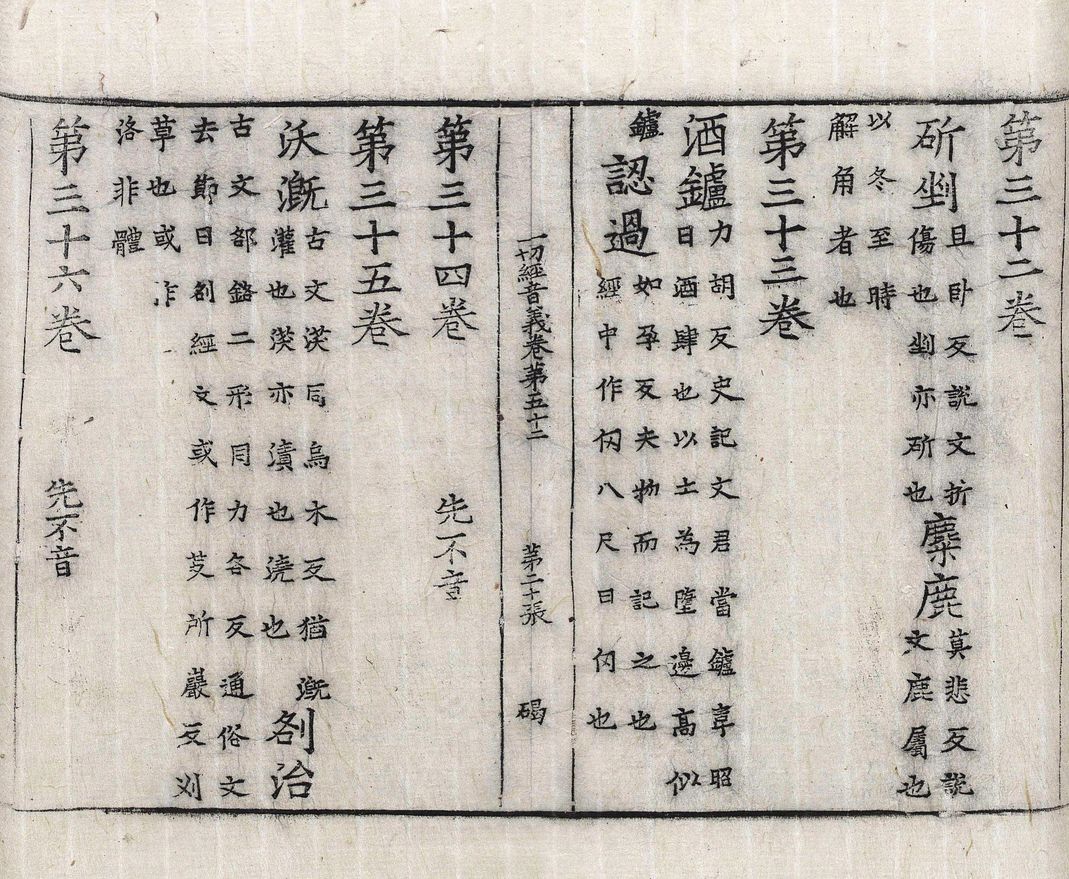 第三十二卷
斫剉且卧反說文折
傷也剉亦斫也麋鹿莫悲反說
文鹿屬也
以冬至時
解角者也
第三十三卷
酒鑪力胡反史記文君當鑪韋昭
曰酒肆也以土為墮邊高似
鑪
認過如孕反夫物而記之也
經中作仞八尺曰仞也
一切經音義卷第五十二 第二十張 碣
第三十四卷 先不音
第三十五卷
沃漑古文渶同烏木反猶漑
灌也渶亦漬也澆也㓢治
古文部鉻二形同力各反通俗文
去節曰㓢經文或作芟所巖反刈
草也或作
洛非體
第三十六卷 先不音